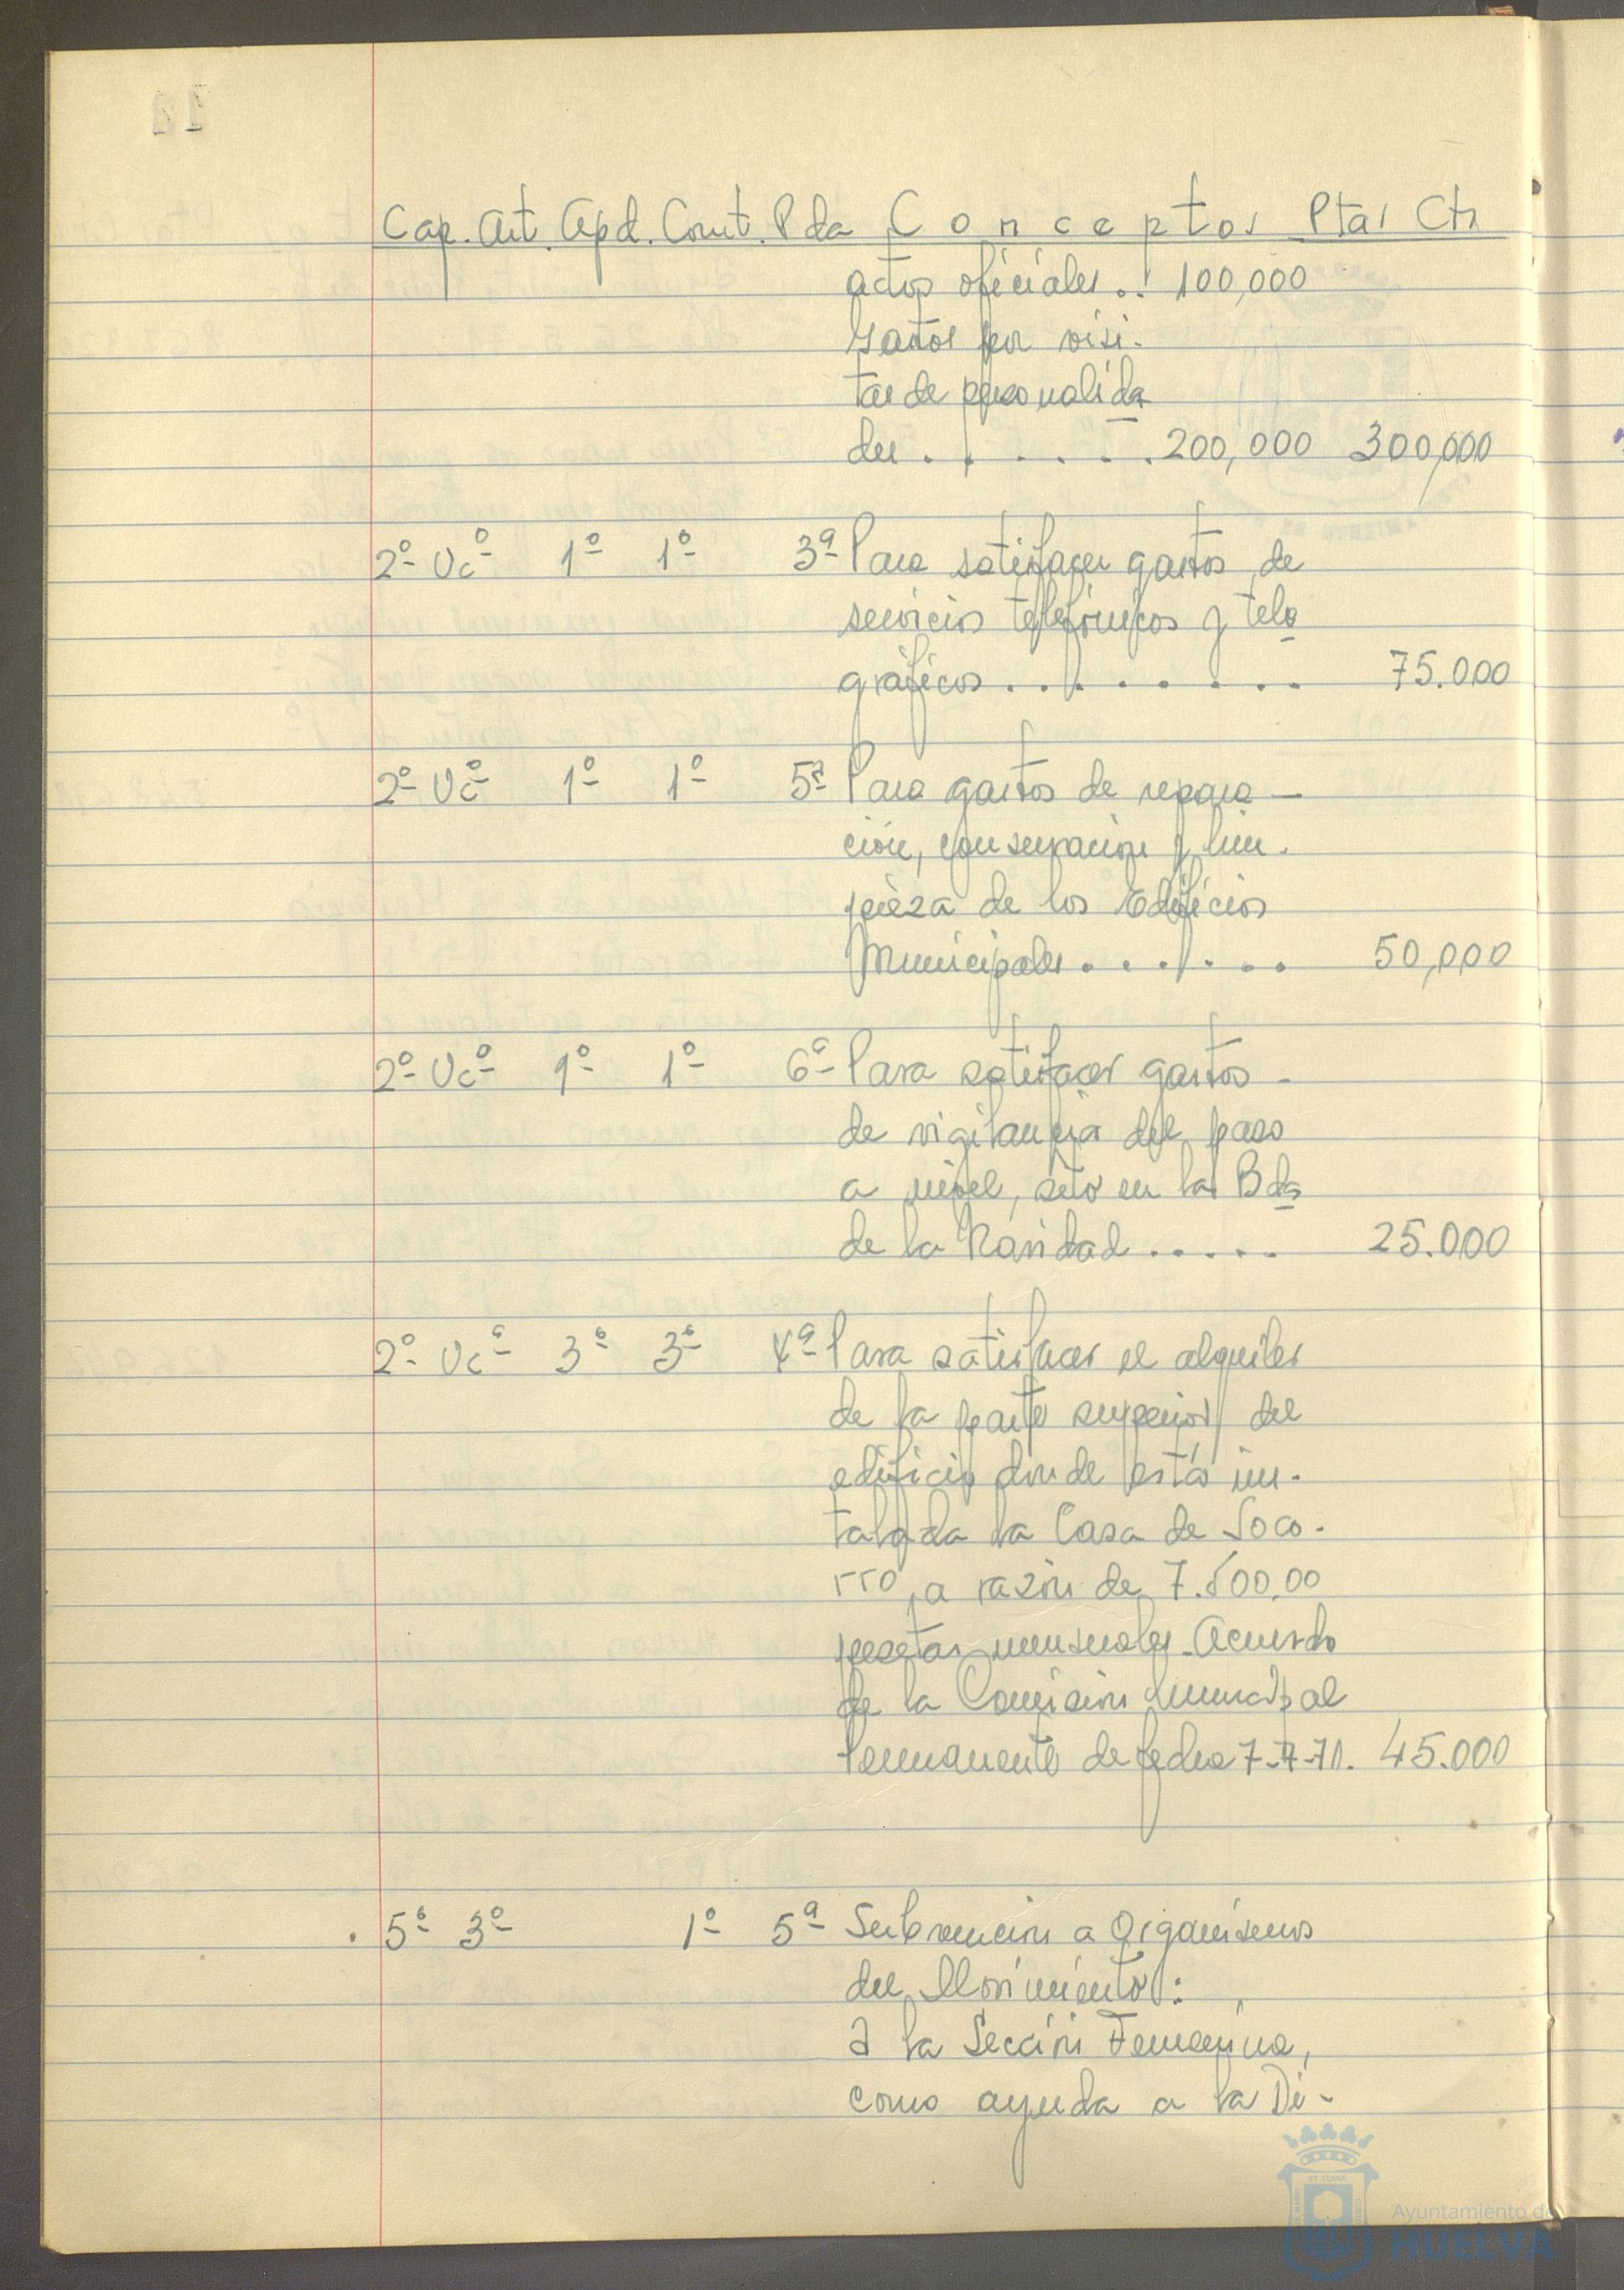 Cap. Art. Apd. Cont. Pda Conceptos Ptas Cts
actos oficiales .. 100,000
Gastos por visi-
tas de personalida
des . . . . . . 200,000 300,000
2º Uc º 1º 1º 3ª Para satisfacer gastos de
servicios telefónicos y tele
gráficos . . . . . . . . 75.000
2º Uc º 1º 1º 5ª Para gastos de repara-
ción, conservación y lim-
pieza de los Edificios
Municipales . . . . . . 50,000
2º Uc º 1º 1º 6ª Para satisfacer gastos
de vigilancia del paso
a nivel, sito en la Bda
de la Navidad . . . . . 25.000
2º Uc º 3º 3º 4ª Para satisfacer el alquiler
de la parte superior del
edificio donde está ins-
talada la Casa de Soco-
rro, a razón de 7.500,00
pesetas mensuales. Acuerdo
de la Comisión Municipal
Permanente de fecha 7-7-71. 45.000
5º 3º 1º 5ª Subvención a Organismos
del Movimiento:
A la Sección Femenina,
como ayuda a la Di-
Ayuntamiento de
HUELVA